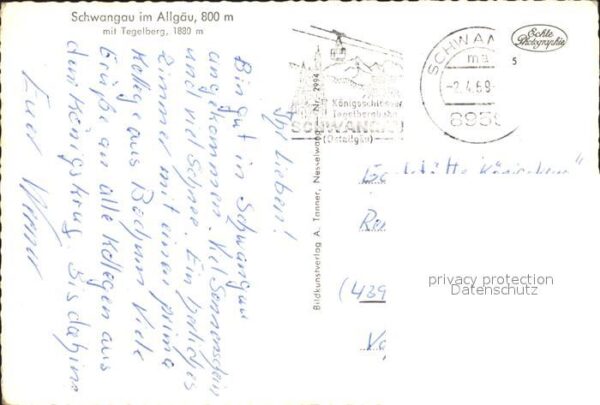 Schwangau im Allgäu, 800 m
mit Tegelberg, 1880 m
Ihr Lieben!
Bin gut in Schwangau
angekommen. Viel Sonnenschein
und viel Schnee. Ein herrliches
Zimmer mit einer prima
Kollege aus Bochum. Viele
Grüße an alle Kollegen aus
dem Königskrug. Bis dahin
Euer Werner
Bildkunstverlag A. Tanner, Nesselwang — Nr. 2994
Königsschlösser
Tegelbergbahn
SCHWANGAU
(Ostallgäu)
SCHWAN
-2.4.69-
895
Echte
Photographie
(439
privacy protection
Datenschutz